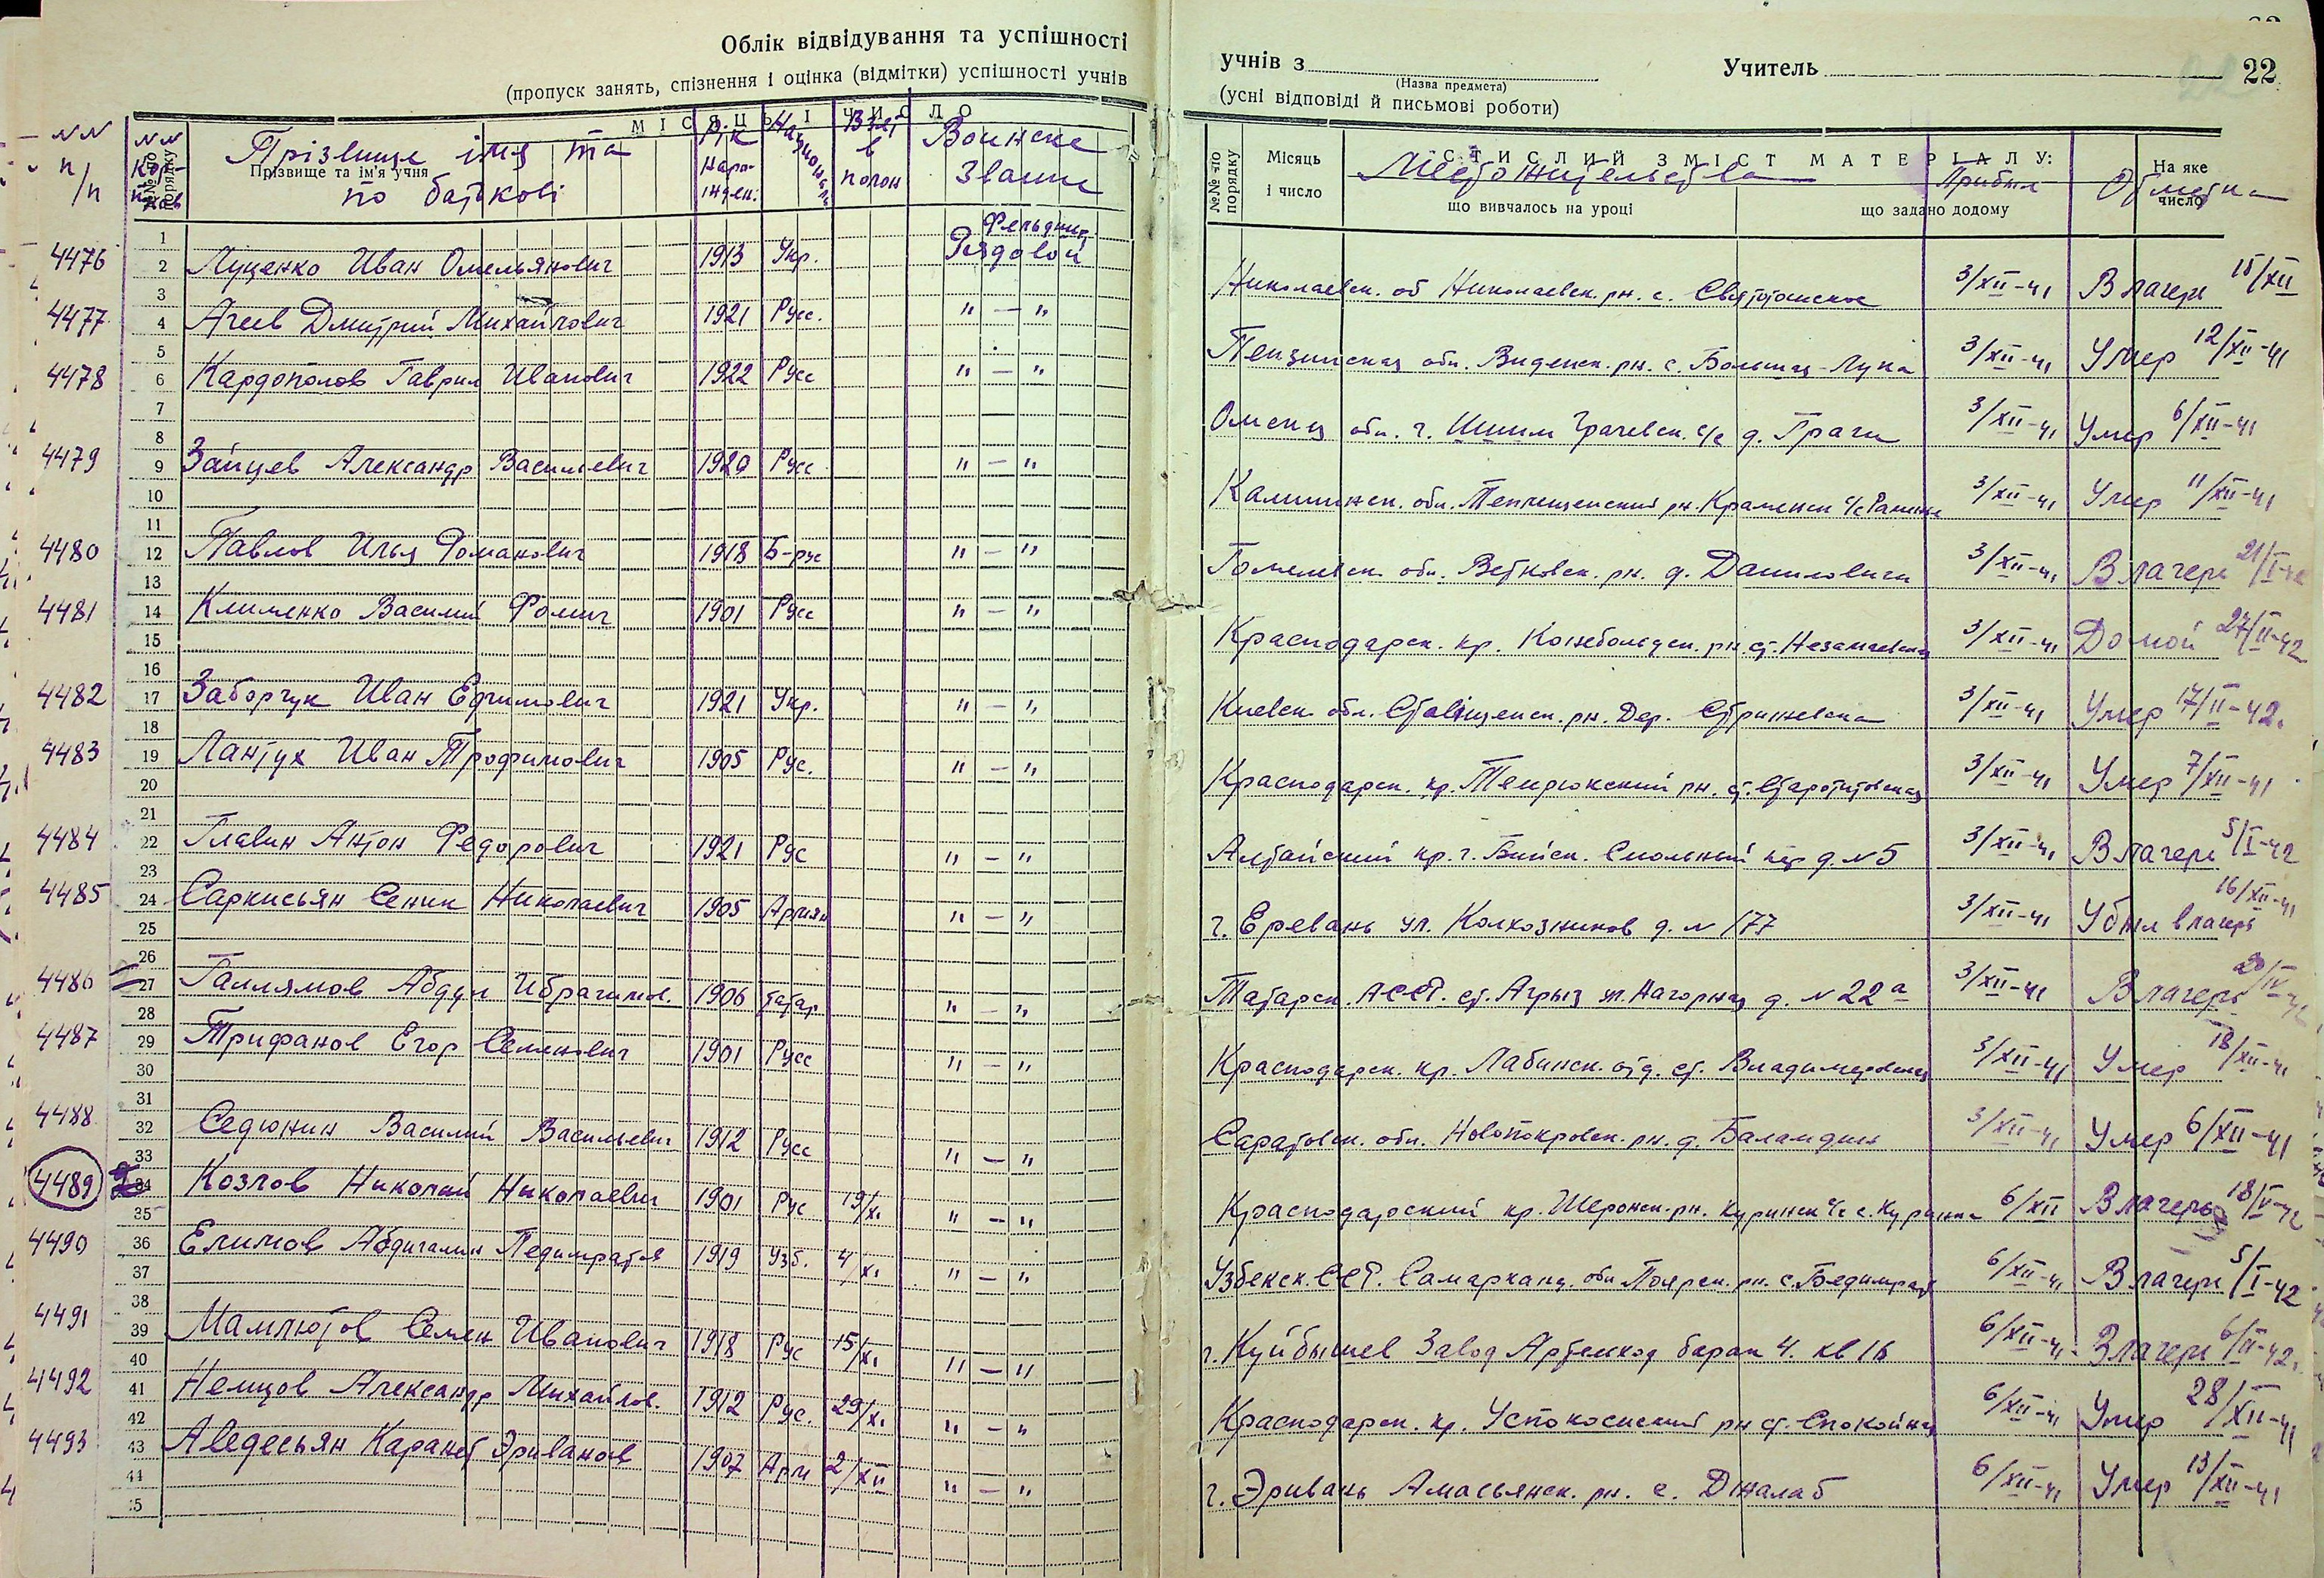 Облік відвідування та успішності
(пропуск занять, спізнення і оцінка (відмітки) успішності учнів
МІСЯЦЬ І ЧИСЛО
№№ п/п
№№ по порядку
Прізвище та ім'я учня
Прізвище імя та по батькові
Рік народжен.
Національн.
Взят в полон
Воинске звание
4476 Луценко Иван Омельянович 1913 Укр. Фельдшер Рядовой
4477 Агеев Дмитрий Михайлович 1921 Русс. " — "
4478 Кардополов Гаврил Иванович 1922 Русс " — "
4479 Зайцев Александр Васильевич 1920 Русс " — "
4480 Павлов Илья Романович 1918 Б-рус " — "
4481 Клименко Василий Фомич 1901 Русс " — "
4482 Заборчук Иван Ефимович 1921 Укр. " — "
4483 Лантух Иван Трофимович 1905 Рус. " — "
4484 Главин Антон Федорович 1921 Рус " — "
4485 Саркисьян Сеник Николаевич 1905 Армян " — "
4486 Галлямов Абдул Ибрагимов. 1906 татар " — "
4487 Трифанов Егор Семенович 1901 Русс " — "
4488 Седюнин Василий Васильевич 1912 Русс " — "
4489 Козлов Николай Николаевич 1901 Рус 19/XI " — "
4490 Елимов Абдигалин 1919 Узб. 4/XI " — "
4491 Мамлютов Семен Иванович 1918 Рус 15/XI " — "
4492 Немцов Александр Михайлов. 1912 Рус. 29/XI " — "
4493 Аведесьян Каранет Эриванов 1907 Арм 2/XII " — "
учнів з
(Назва предмета)
Учитель
22
(усні відповіді й письмові роботи)
№№ по порядку
Місяць і число
СТИСЛИЙ ЗМІСТ МАТЕРІАЛУ:
що вивчалось на уроці
що задано додому
На яке число
Местожительства
Прибыл
Отметка
Николаевск. об Николаевск. рн. с. 3/XII-41 В лагерь 15/XII
Пензинская обл. рн. с. Большая-Лука 3/XII-41 Умер 12/XII-41
Омская обл. г. Ишим Грачевск. с/с д. Грачи 3/XII-41 Умер 6/XII-41
Калининск. обл. рн. 3/XII-41 Умер 11/XII-41
Гомельск. обл. Ветковск. рн. д. Даниловичи 3/XII-41 В лагерь 21/I-42
Краснодарск. кр. рн. ст. Незамаевская 3/XII-41 Домой 27/II-42
Киевск. обл. Ставищенск. рн. Дер. Стрижевска 3/XII-41 Умер 17/II-42.
Краснодарск. кр. Темрюкский рн. ст. Старотитовская 3/XII-41 Умер 7/XII-41
Алтайский кр. г. Бийск. Смольный пер д. №5 3/XII-41 В лагерь 5/I-42
г. Еревань ул. Колхозников д. № 177 3/XII-41 Убыл в лагерь 16/XII-41
Татарск. АССР. ст. Агрыз ул. Нагорная д. № 22а 3/XII-41 В лагерь 20/IV-42
Краснодарск. кр. Лабинск. отд. ст. Владимировская 3/XII-41 Умер 18/XII-41
Саратовск. обл. Новопокровск. рн. д. Баландин 3/XII-41 Умер 6/XII-41
Краснодарский кр. рн. Куринск с/с с. Куринка 6/XII В лагерь 18/V-42
Узбекск. ССР. Самарканд. обл рн. с. 6/XII-41 В лагерь 5/I-42
г. Куйбышев Завод барак 4. кв 16 6/XII-41 В лагерь 6/II-42.
Краснодарск. кр. рн ст. Спокойная 6/XII-41 Умер 28/XII-41
г. Эривань Амасьянск. рн. с. Джалаб 6/XII-41 Умер 13/XII-41